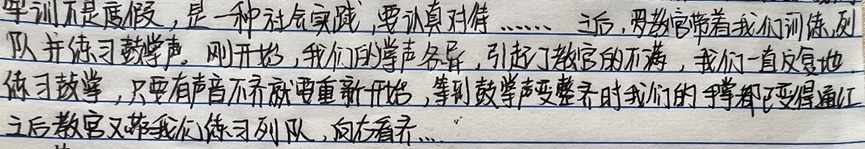 军训不是度假，是一种社会实践，要认真对待……之后，罗教官带着我们训练列
队并练习鼓掌声。刚开始，我们的掌声各异，引起了教官的不满，我们一直反复地
练习鼓掌，只要有声音不齐就要重新开始，等到鼓掌声变整齐时我们的手掌都已变得通红
之后教官又带我们练习列队，向右看齐…